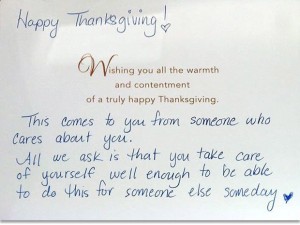 Happy Thanksgiving!
Wishing you all the warmth
and contentment
of a truly happy Thanksgiving.
This comes to you from someone who
cares about you.
All we ask is that you take care
of yourself well enough to be able
to do this for someone else someday